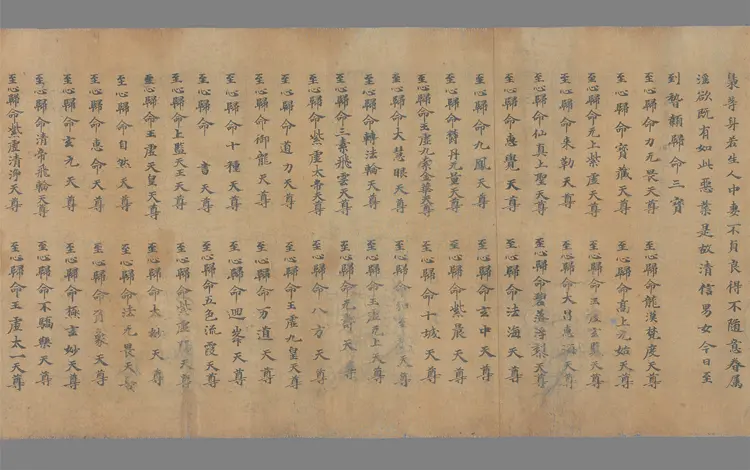 裊等身若生人中妻不貞良得不隨意眷屬
淫欲既有如此惡業是故清信男女今日至
到誓願歸命三寶
至心歸命力无畏天尊 至心歸命龍漢梵度天尊
至心歸命寶藏天尊 至心歸命高上元始天尊
至心歸命元上紫虛天尊 至心歸命玄監天尊
至心歸命朱勒天尊 至心歸命大慈天尊
至心歸命仙真上聖天尊 至心歸命碧落浮黎天尊
至心歸命惠覺天尊 至心歸命法海天尊
至心歸命九鳳天尊 至心歸命玄中天尊
至心歸命丹元量天尊 至心歸命紫晨天尊
至心歸命玉虛九素金華天尊 至心歸命十城天尊
至心歸命大慧眼天尊 至心歸命天尊
至心歸命轉法輪天尊 至心歸命玉虛元上天尊
至心歸命三素飛雲天尊 至心歸命元命天尊
至心歸命紫虛太者天尊 至心歸命八方天尊
至心歸命道力天尊 至心歸命玉虛九皇天尊
至心歸命御龍天尊 至心歸命万道天尊
至心歸命十種天尊 至心歸命迴天尊
至心歸命書天尊 至心歸命五色流霞天尊
至心歸命上監天王天尊 至心歸命紫虛天尊
至心歸命玉虛天皇天尊 至心歸命太妙天尊
至心歸命自然天尊 至心歸命法无畏天尊
至心歸命惠命天尊 至心歸命天尊
至心歸命玄元天尊 至心歸命梅玄妙天尊
至心歸命清帝飛輪天尊 至心歸命不驕樂天尊
至心歸命紫虛清淨天尊 至心歸命玉虛太一天尊